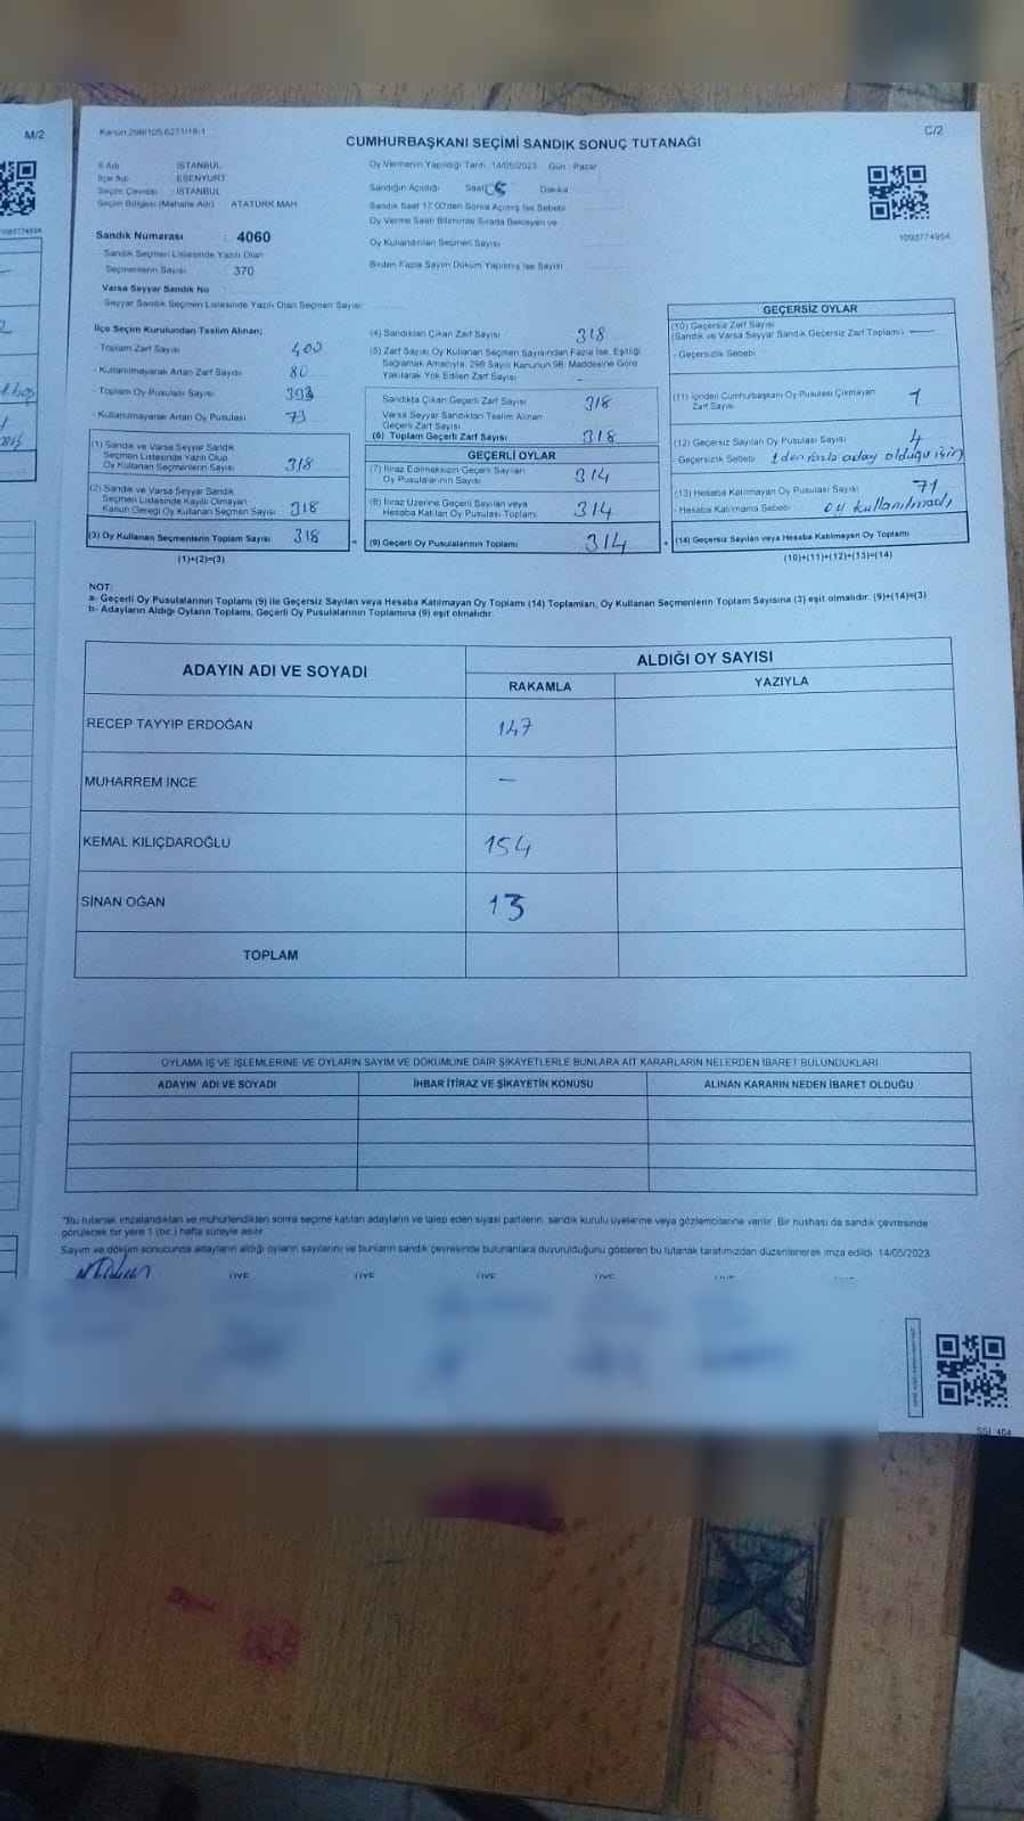 M/2
Kanun 298/105,6271/18-1
C/2
CUMHURBAŞKANI SEÇİMİ SANDIK SONUÇ TUTANAĞI
İl Adı İSTANBUL
İlçe Adı ESENYURT
Seçim Çevresi İSTANBUL
Seçim Bölgesi (Mahalle Adı) ATATÜRK MAH
Sandık Numarası 4060
Sandık Seçmen Listesinde Yazılı Olan
Seçmenlerin Sayısı 370
Varsa Seyyar Sandık No
Seyyar Sandık Seçmen Listesinde Yazılı Olan Seçmen Sayısı
Oy Vermenin Yapıldığı Tarih 14/05/2023 Gün : Pazar
Sandığın Açıldığı Saat Dakika
Sandık Saat 17:00'den Sonra Açılmış İse Sebebi
Oy Verme Saati Bitiminde Sırada Bekleyen ve
Oy Kullandırılan Seçmen Sayısı
Birden Fazla Sayım Döküm Yapılmış İse Sayısı
1093774954
İlçe Seçim Kurulundan Teslim Alınan;
- Toplam Zarf Sayısı 400
- Kullanılmayarak Artan Zarf Sayısı 80
- Toplam Oy Pusulası Sayısı 393
- Kullanılmayarak Artan Oy Pusulası 73
(1) Sandık ve Varsa Seyyar Sandık
Seçmen Listesinde Yazılı Olup
Oy Kullanan Seçmenlerin Sayısı 318
(2) Sandık ve Varsa Seyyar Sandık
Seçmen Listesinde Kayıtlı Olmayan
Kanun Gereği Oy Kullanan Seçmen Sayısı 318
(3) Oy Kullanan Seçmenlerin Toplam Sayısı 318
(1)+(2)=(3)
(4) Sandıktan Çıkan Zarf Sayısı 318
(5) Zarf Sayısı Oy Kullanan Seçmen Sayısından Fazla İse, Eşitliği
Sağlamak Amacıyla, 298 Sayılı Kanunun 98. Maddesine Göre
Yakılarak Yok Edilen Zarf Sayısı -
Sandıkta Çıkan Geçerli Zarf Sayısı 318
Varsa Seyyar Sandıktan Teslim Alınan
Geçerli Zarf Sayısı
(6) Toplam Geçerli Zarf Sayısı 318
GEÇERLİ OYLAR
(7) İtiraz Edilmeksizin Geçerli Sayılan
Oy Pusulalarının Sayısı 314
(8) İtiraz Üzerine Geçerli Sayılan veya
Hesaba Katılan Oy Pusulası Toplamı 314
(9) Geçerli Oy Pusulalarının Toplamı 314
GEÇERSİZ OYLAR
(10) Geçersiz Zarf Sayısı
(Sandık ve Varsa Seyyar Sandık Geçersiz Zarf Toplamı) —
- Geçersizlik Sebebi
(11) İçinden Cumhurbaşkanı Oy Pusulası Çıkmayan
Zarf Sayısı 1
(12) Geçersiz Sayılan Oy Pusulası Sayısı 4
- Geçersizlik Sebebi 1 den fazla aday olduğu için
(13) Hesaba Katılmayan Oy Pusulası Sayısı 71
- Hesaba Katılmama Sebebi oy kullanılmadı
(14) Geçersiz Sayılan veya Hesaba Katılmayan Oy Toplamı
(10)+(11)+(12)+(13)=(14)
NOT:
a- Geçerli Oy Pusulalarının Toplamı (9) ile Geçersiz Sayılan veya Hesaba Katılmayan Oy Toplamı (14) Toplamları, Oy Kullanan Seçmenlerin Toplam Sayısına (3) eşit olmalıdır. (9)+(14)=(3)
b- Adayların Aldığı Oyların Toplamı, Geçerli Oy Pusulalarının Toplamına (9) eşit olmalıdır.
ADAYIN ADI VE SOYADI
ALDIĞI OY SAYISI
RAKAMLA YAZIYLA
RECEP TAYYIP ERDOĞAN 147
MUHARREM İNCE —
KEMAL KILIÇDAROĞLU 154
SİNAN OĞAN 13
TOPLAM
OYLAMA İŞ VE İŞLEMLERİNE VE OYLARIN SAYIM VE DÖKÜMÜNE DAİR ŞİKAYETLERLE BUNLARA AİT KARARLARIN NELERDEN İBARET BULUNDUKLARI
ADAYIN ADI VE SOYADI İHBAR İTİRAZ VE ŞİKAYETİN KONUSU ALINAN KARARIN NEDEN İBARET OLDUĞU
*Bu tutanak imzalandıktan ve mühürlendikten sonra seçime katılan adayların ve talep eden siyasi partilerin, sandık kurulu üyelerine veya gözlemcilerine verilir. Bir nüshası da sandık çevresinde
görülecek bir yere 1 (bir ) hafta süreyle asılır.
Sayım ve döküm sonucunda adayların aldığı oyların sayılarını ve bunların sandık çevresinde bulunanlara duyurulduğunu gösteren bu tutanak tarafımızdan düzenlenerek imza edildi. 14/05/2023
ÜYE ÜYE ÜYE ÜYE